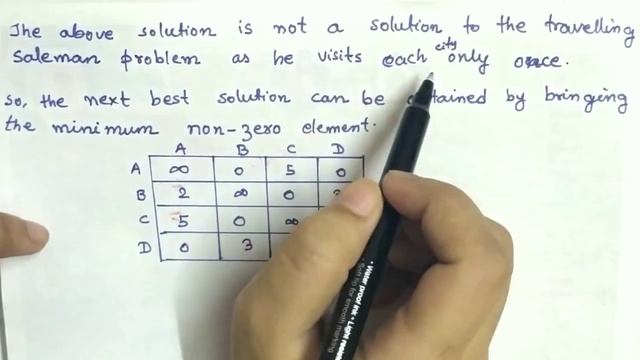 The above solution is not a solution to the travelling
Saleman problem as he visits each city only once.
So, the next best solution can be tained by bringing
the minimum non-zero element.
A B C D
A ∞ 0 5 0
B 2 ∞ 0
C 5 0 ∞
D 0 3
Water proof ink • Light
Soft tip for smooth marking